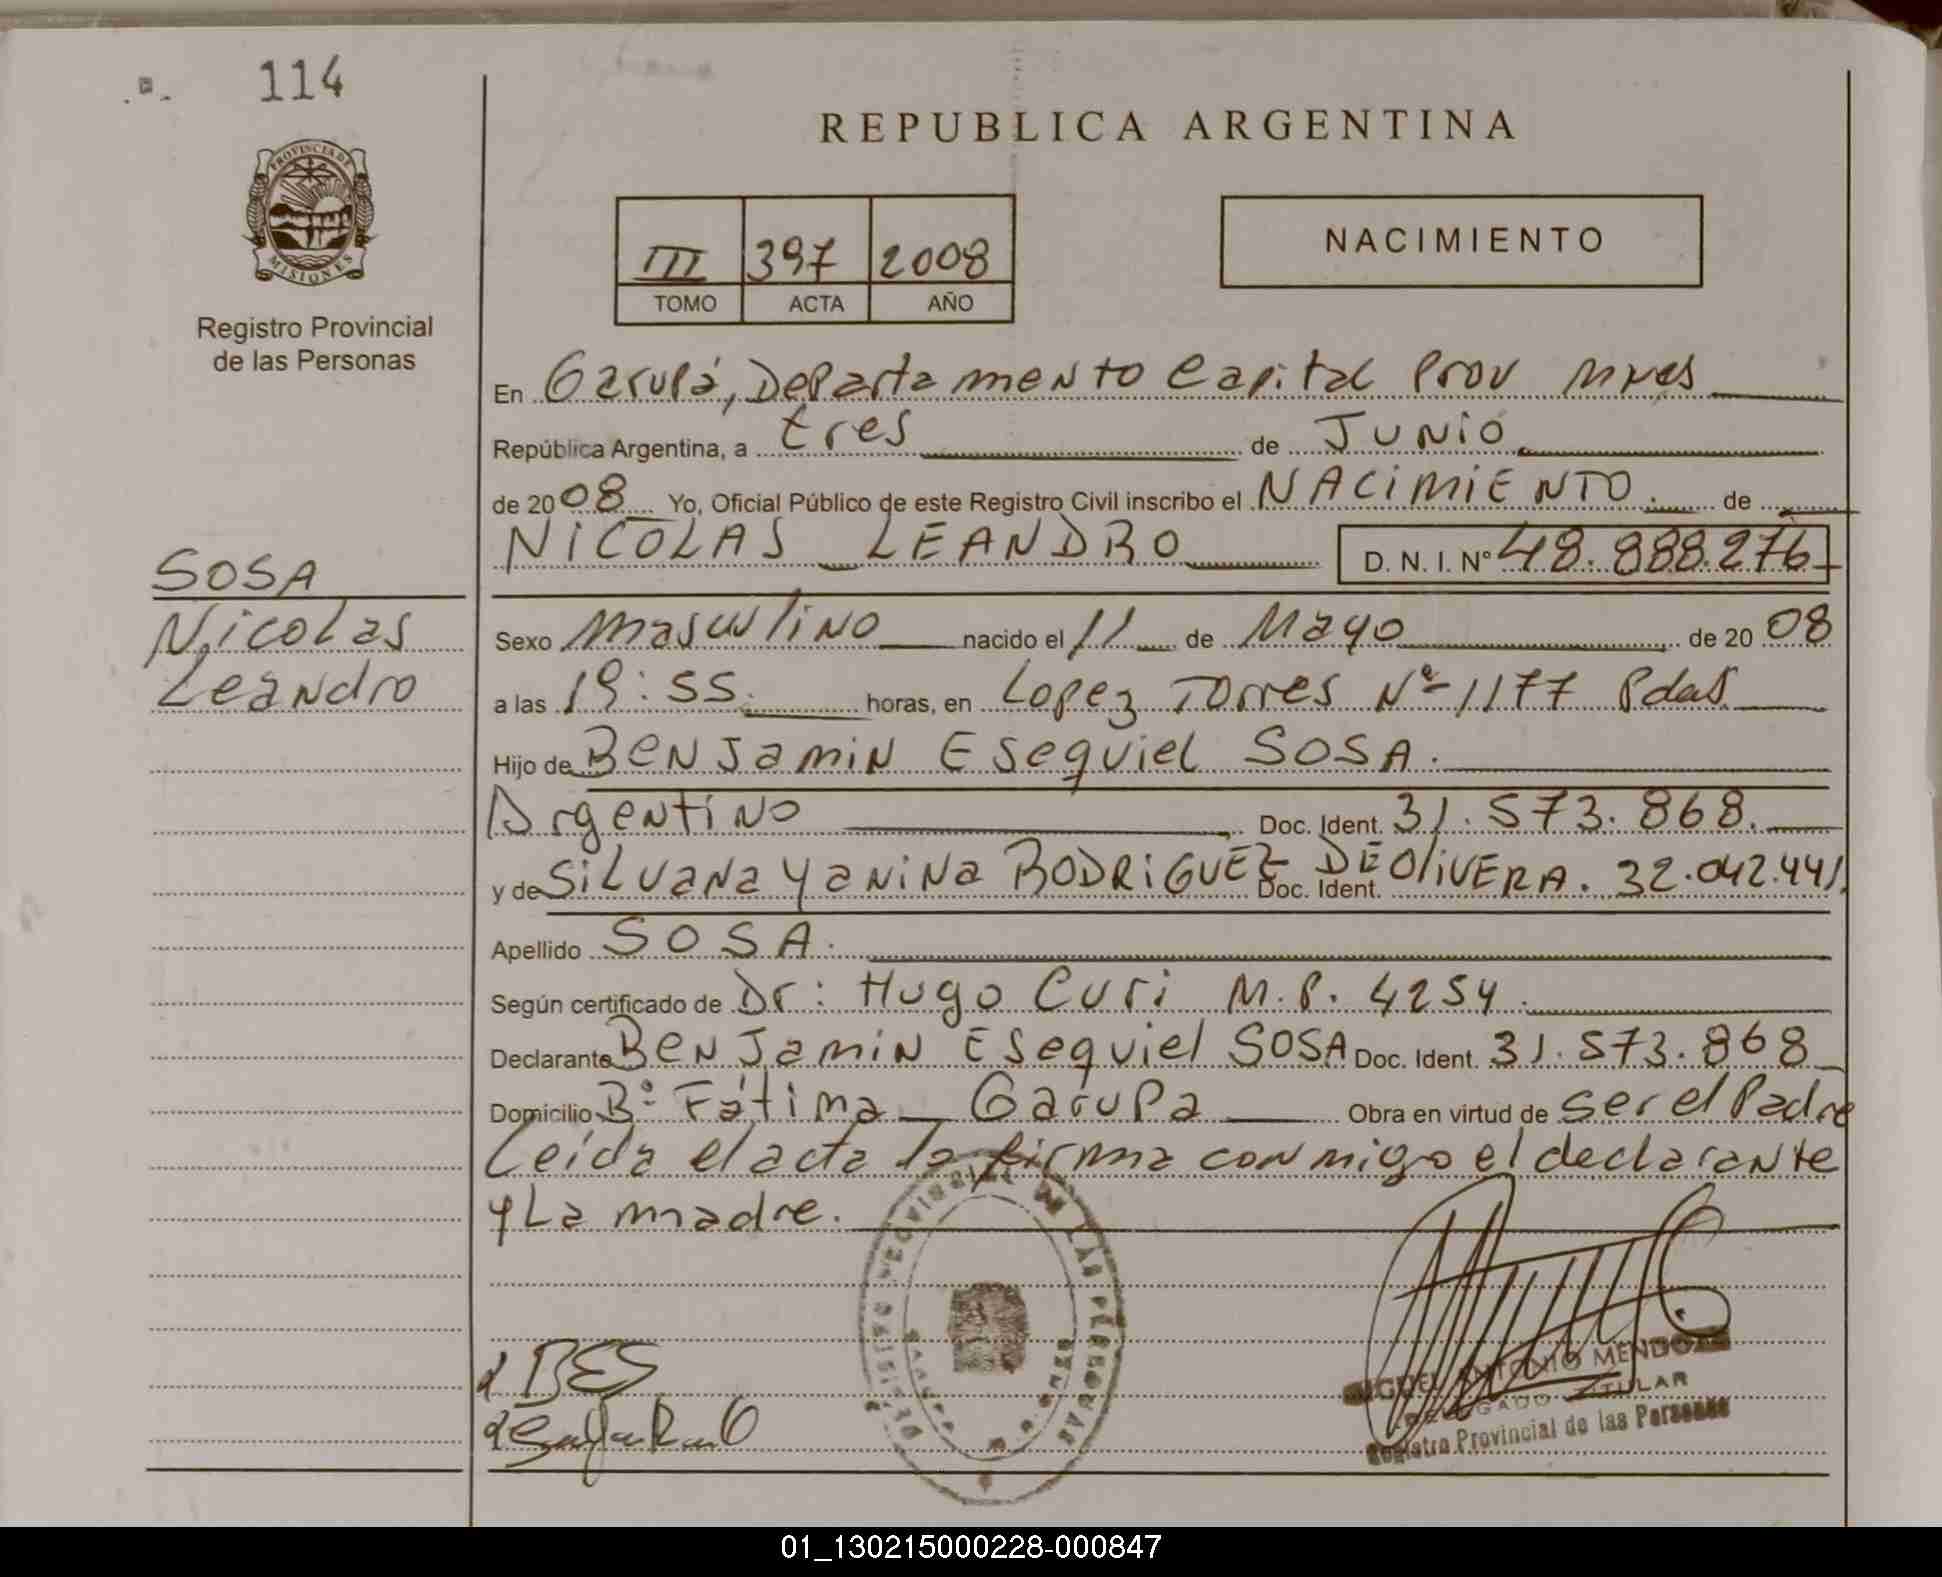 114
REPUBLICA ARGENTINA
PROVINCIA DE
MISIONES
Registro Provincial
de las Personas
III 397 2008
TOMO ACTA AÑO
NACIMIENTO
En Garupá, Departamento Capital Prov Mnes
República Argentina, a tres de Junio
de 2008 Yo, Oficial Público de este Registro Civil inscribo el NACIMIENTO de
NICOLAS LEANDRO D. N. I. Nº 48.888.276
SOSA
Nicolas
Leandro
Sexo masculino nacido el 11 de Mayo de 2008
a las 19:55 horas, en Lopez Torres Nº 1177 Pdas
Hijo de Benjamin Esequiel SOSA.
Argentino Doc. Ident. 31.573.868.
y de Silvana Yanina RODRIGUEZ DE OLIVERA. Doc. Ident. 32.042.441.
Apellido SOSA.
Según certificado de Dr: Hugo Curi M.P. 4254.
Declarante Benjamin Esequiel SOSA Doc. Ident. 31.573.868
Domicilio Bº Fátima _ Garupa Obra en virtud de ser el Padre
Leida el acta la firma conmigo el declarante
y La madre.
BES
MIGUEL ANTONIO MENDOZA
DELEGADO TITULAR
Registro Provincial de las Personas
REGISTRO PROVINCIAL DE LAS PERSONAS
01_130215000228-000847